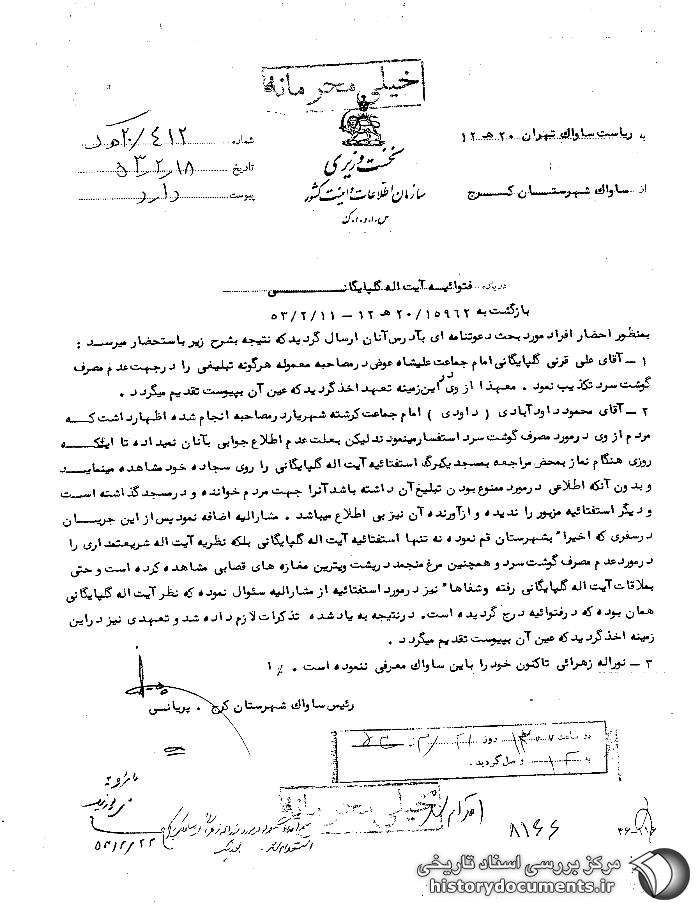 خیلی محرمانه
به ریاست ساواک تهران ۲۰ هـ ۱۲
شماره ۲۰/۴۱۲ هـ ک
نخست وزیری
تاریخ ۵۳،۲،۱۸
از ساواک شهرستان کرج
سازمان اطلاعات و امنیت کشور
پیوست دارد
س.ا.و.ا.ک
درباره فتوائیه آیت اله گلپایگانی
بازگشت به ۲۰/۱۵۹۶۲ هـ ۱۲ – ۵۳/۲/۱۱
بمنظور احضار افراد مورد بحث دعوتنامه ای بآدرس آنان ارسال گردید که نتیجه بشرح زیر باستحضار میرسد :
۱ – آقای علی قرنی گلپایگانی امام جماعت علیشاه عوض در مصاحبه معموله هرگونه تبلیغی را در جهت عدم مصرف
گوشت سرد تکذیب نمود . معهذا از وی در این زمینه تعهد اخذ گردید که عین آن بپیوست تقدیم میگردد .
۲ – آقای محمود داودآبادی ( داودی ) امام جماعت کرشته شهریار در مصاحبه انجام شده اظهار داشت که
مردم از وی در مورد مصرف گوشت سرد استفسار مینمودند لیکن بعلت عدم اطلاع جوابی بآنان نمیداده تا اینکه
روزی هنگام نماز بمحض مراجعه بمسجد یکبرگ استفتائیه آیت اله گلپایگانی را روی سجاده خود مشاهده مینماید
و بدون آنکه اطلاعی در مورد ممنوع بودن تبلیغ آن داشته باشد آنرا جهت مردم خوانده و در مسجد گذاشته است
و دیگر استفتائیه مزبور را ندیده و از آورنده آن نیز بی اطلاع میباشد . مشارالیه اضافه نمود پس از این جریان
در سفری که اخیراً بشهرستان قم نموده نه تنها استفتائیه آیت اله گلپایگانی بلکه نظریه آیت اله شریعتمداری را
در مورد عدم مصرف گوشت سرد و همچنین مرغ منجمد در پشت ویترین مغازه های قصابی مشاهده کرده است و حتی
بملاقات آیت اله گلپایگانی رفته و شفاهاً نیز در مورد استفتائیه از مشارالیه سئوال نموده که نظر آیت اله گلپایگانی
همان بوده که در فتوائیه درج گردیده است . در نتیجه به یاد شده تذکرات لازم داده شد و تعهدی نیز در این
زمینه اخذ گردید که عین آن بپیوست تقدیم میگردد .
۳ – نوراله زهرائی تاکنون خود را باین ساواک معرفی ننموده است .
رئیس ساواک شهرستان کرج . پریانسی
در ساعت روز
به ۱۲ واصل گردید .
خیلی محرمانه
اقدام
۸۱۶۶
۵۳/۲/۲۲
مرکز بررسی اسناد تاریخی
historydocuments.ir